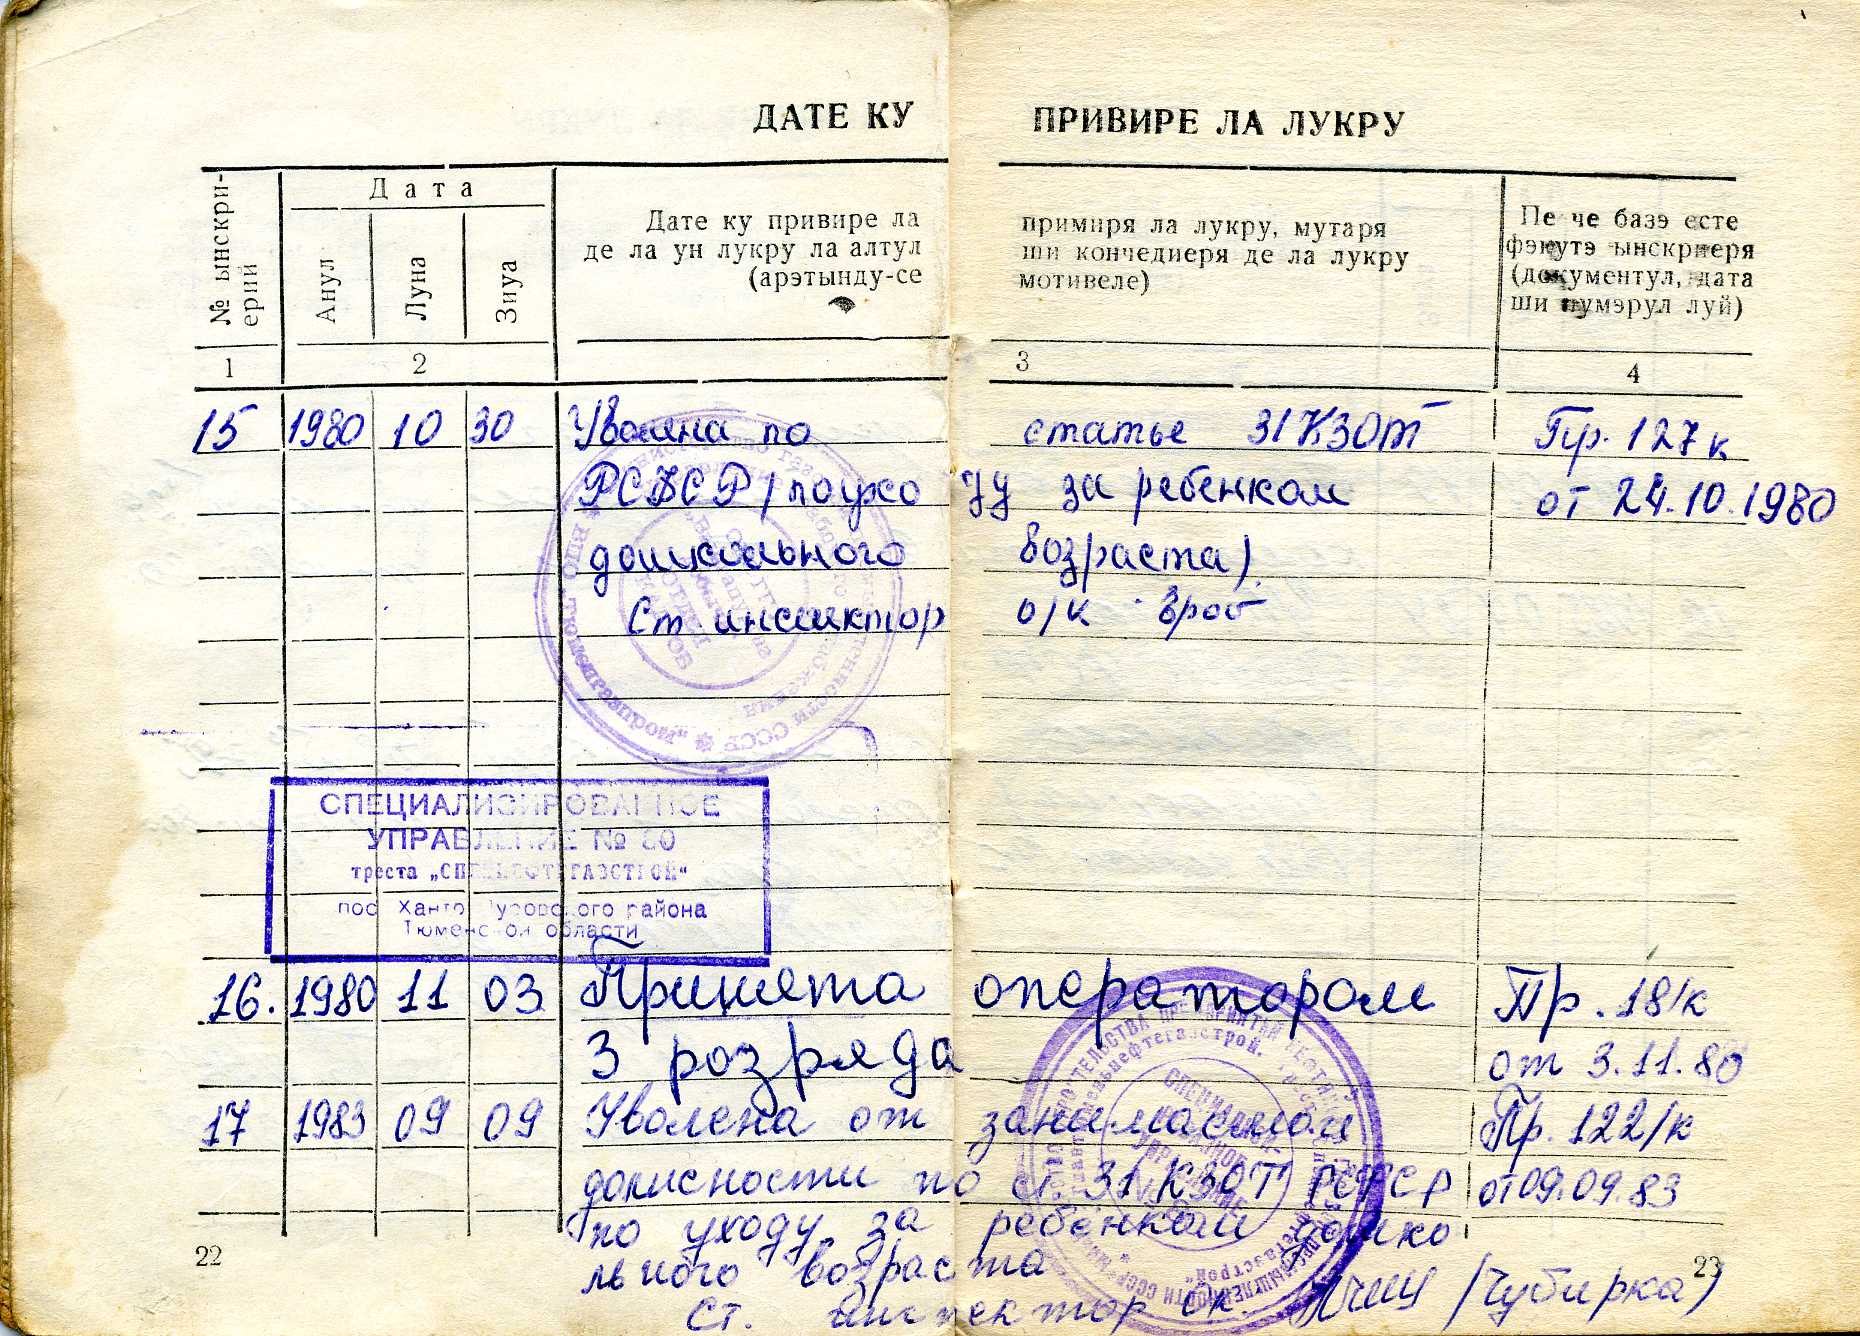 ДАТЕ КУ ПРИВИРЕ ЛА ЛУКРУ
№ ынскри-
ерий
Дата
Анул
Луна
Зиуа
Дате ку привире ла примиря ла лукру, мутаря
де ла ун лукру ла алтул ши кончедиеря де ла лукру
(арэтынду-се мотивеле)
Пе че базэ есте
фэкутэ ынскриеря
(документул, дата
ши нумэрул луй)
1 2 3 4
15 1980 10 30 Уволена по статье 31 КЗОТ Пр. 127к
РСФСР (по уходу за ребенком от 24.10.1980
дошкольного возраста).
Ст. инспектор о/к
СПЕЦИАЛИЗИРОВАННОЕ
УПРАВЛЕНИЕ № 80
треста „СПЕЦНЕФТЕГАЗСТРОЙ“
пос Ханто Пуровского района
Тюменской области
16. 1980 11 03 Принята оператором Пр. 18/к
3 розряда от 3.11.80
17 1983 09 09 Уволена от занимаемой Пр. 122/к
должности по ст 31 КЗОТ РСФСР от 09.09.83
по уходу за ребенком дошко
льного возраста
Ст. инспектор ок. (Чубирка)
22
23